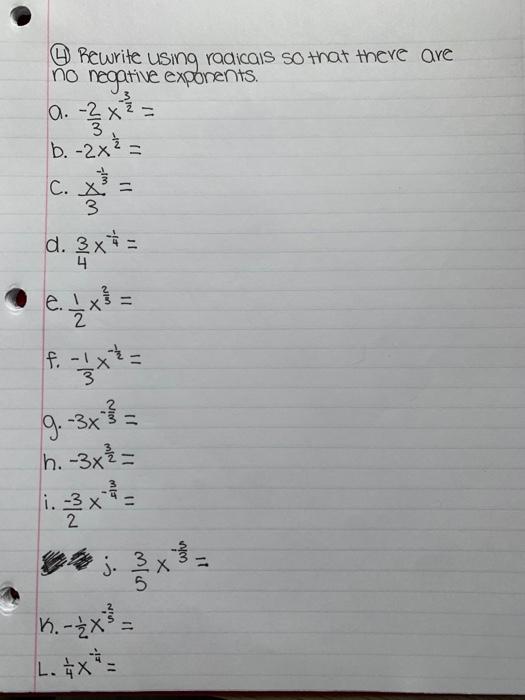 ④ Rewrite using radicals so that there are
no negative exponents.
a. -2/3 x^(-3/2) =
b. -2x^(1/2) =
C. x^(-1/3)/3 =
d. 3/4 x^(-1/4) =
e. 1/2 x^(2/3) =
f. -1/3 x^(-1/2) =
g. -3x^(-2/3) =
h. -3x^(3/2) =
i. -3/2 x^(-3/4) =
j. 3/5 x^(-5/3) =
K. -1/2 x^(-2/5) =
L. 1/4 x^(-1/4) =